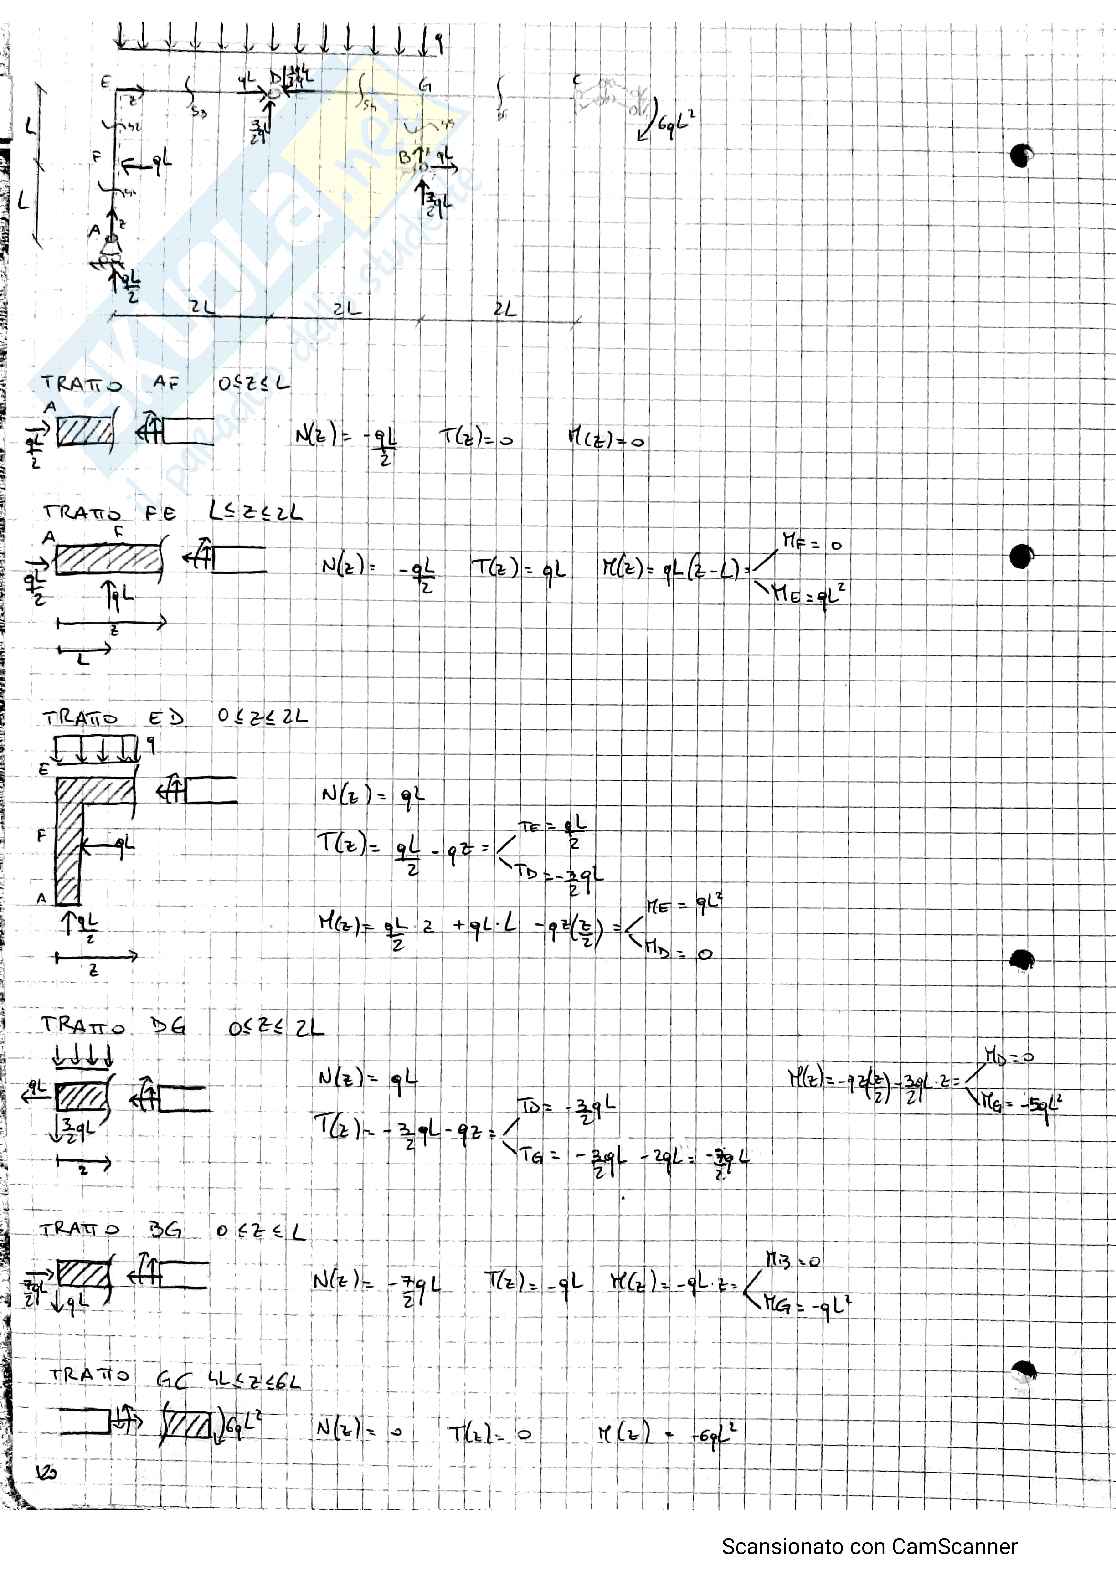 q
E z S3 qL D 3/2 qL S4 G S5 C
3/2 qL
6qL²
L
F qL B qL
L
7/2 qL
A z
qL/2
2L 2L 2L
TRATTO AF 0≤z≤L
A
qL/2
N(z) = -qL/2 T(z)=0 M(z)=0
TRATTO FE L≤z≤2L
A F
qL/2 qL
z
L
N(z) = -qL/2 T(z) = qL M(z) = qL(z-L) = MF = 0
ME = qL²
TRATTO ED 0≤z≤2L
q
E
F qL
A
qL/2
z
N(z) = qL
T(z) = qL/2 - qz = TE = qL/2
TD = -3/2 qL
M(z) = qL/2 z + qL·L - qz(z/2) = ME = qL²
MD = 0
TRATTO DG 0≤z≤2L
qL
3/2 qL
z
N(z) = qL
T(z) = -3/2 qL - qz = TD = -3/2 qL
TG = -3/2 qL - 2qL = -7/2 qL
M(z) = -qz(z/2) - 3/2 qL·z = MD = 0
MG = -5qL²
TRATTO BG 0≤z≤L
7/2 qL qL
N(z) = -7/2 qL T(z) = -qL M(z) = -qL·z = MB = 0
MG = -qL²
TRATTO GC 4L≤z≤6L
6qL²
N(z) = 0 T(z) = 0 M(z) = -6qL²
120
SKUOLA.net
il paradiso dello studente
Scansionato con CamScanner